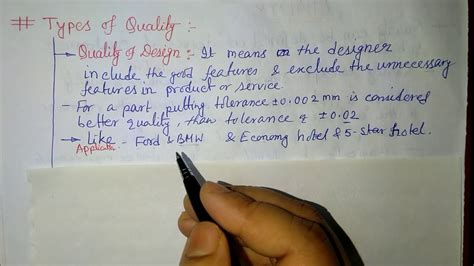 # Types of Quality :-
→ Quality of Design :- It means on the designer
include the good features & exclude the unnecessary
features in product or service.
- For a part, putting tolerance ±0.002 mm is considered
better quality, than tolerance of ±0.02
→ Like - Ford & BMW & Economy hotel & 5-star hotel.
Applicatn